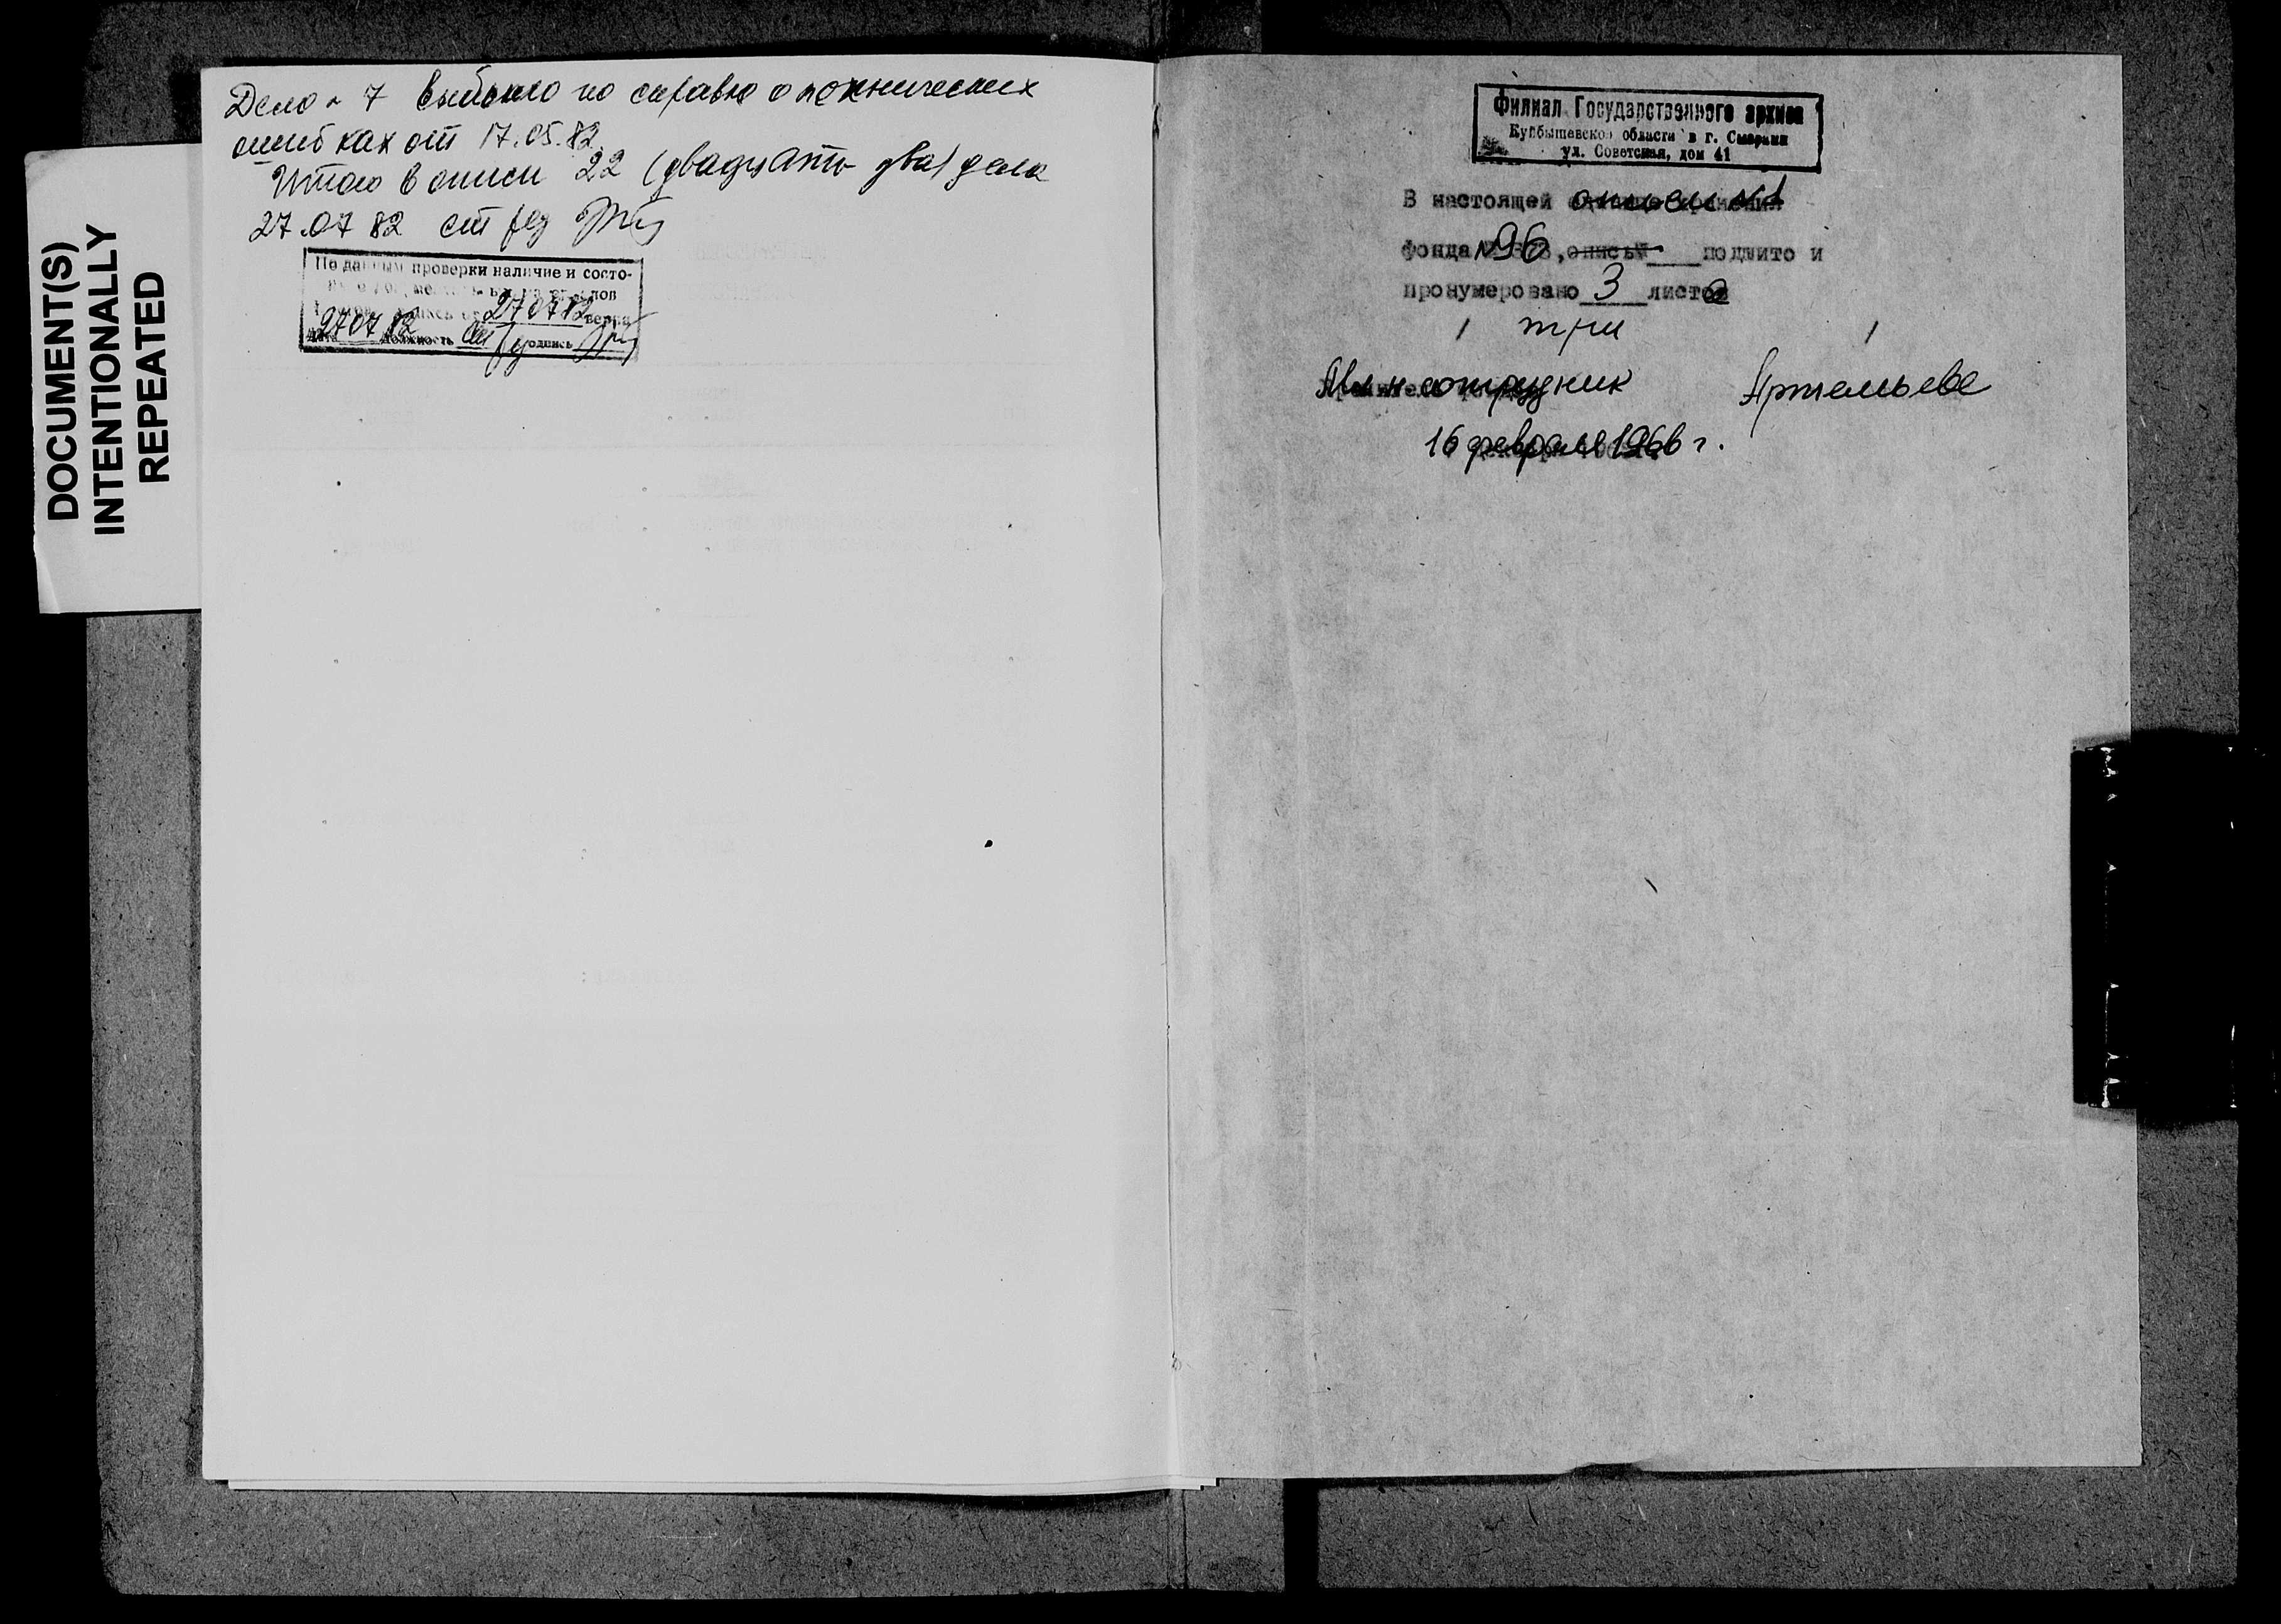 DOCUMENT(S)
INTENTIONALLY
REPEATED
Дело № 7 выбыло по справке о технических
ошибках от 17.05.82.
Итого в описи 22 (двадцать два) дела
27.07 82 ст ред
По данным проверки наличие и состо-
27 07 82
27 07 82 должность ст ред подпись
Филиал Государственного архива
Куйбышевской области в г. Сызрани
ул. Советская, дом 41
В настоящей описи №1
фонда №96, опись№ подшито и
пронумеровано 3 листа
/ три /
сотрудник Артемьева
16 февраля 1966 г.